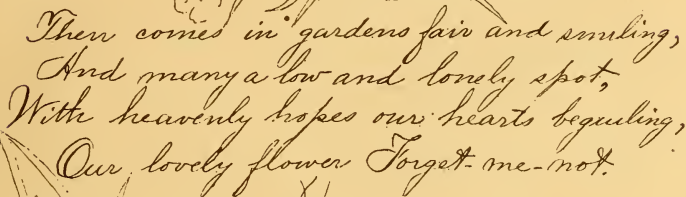 Then comes in gardens fair and smiling,
And many a low and lonely spot,
With heavenly hopes our hearts beguiling,
Our lovely flower Forget-me-not.